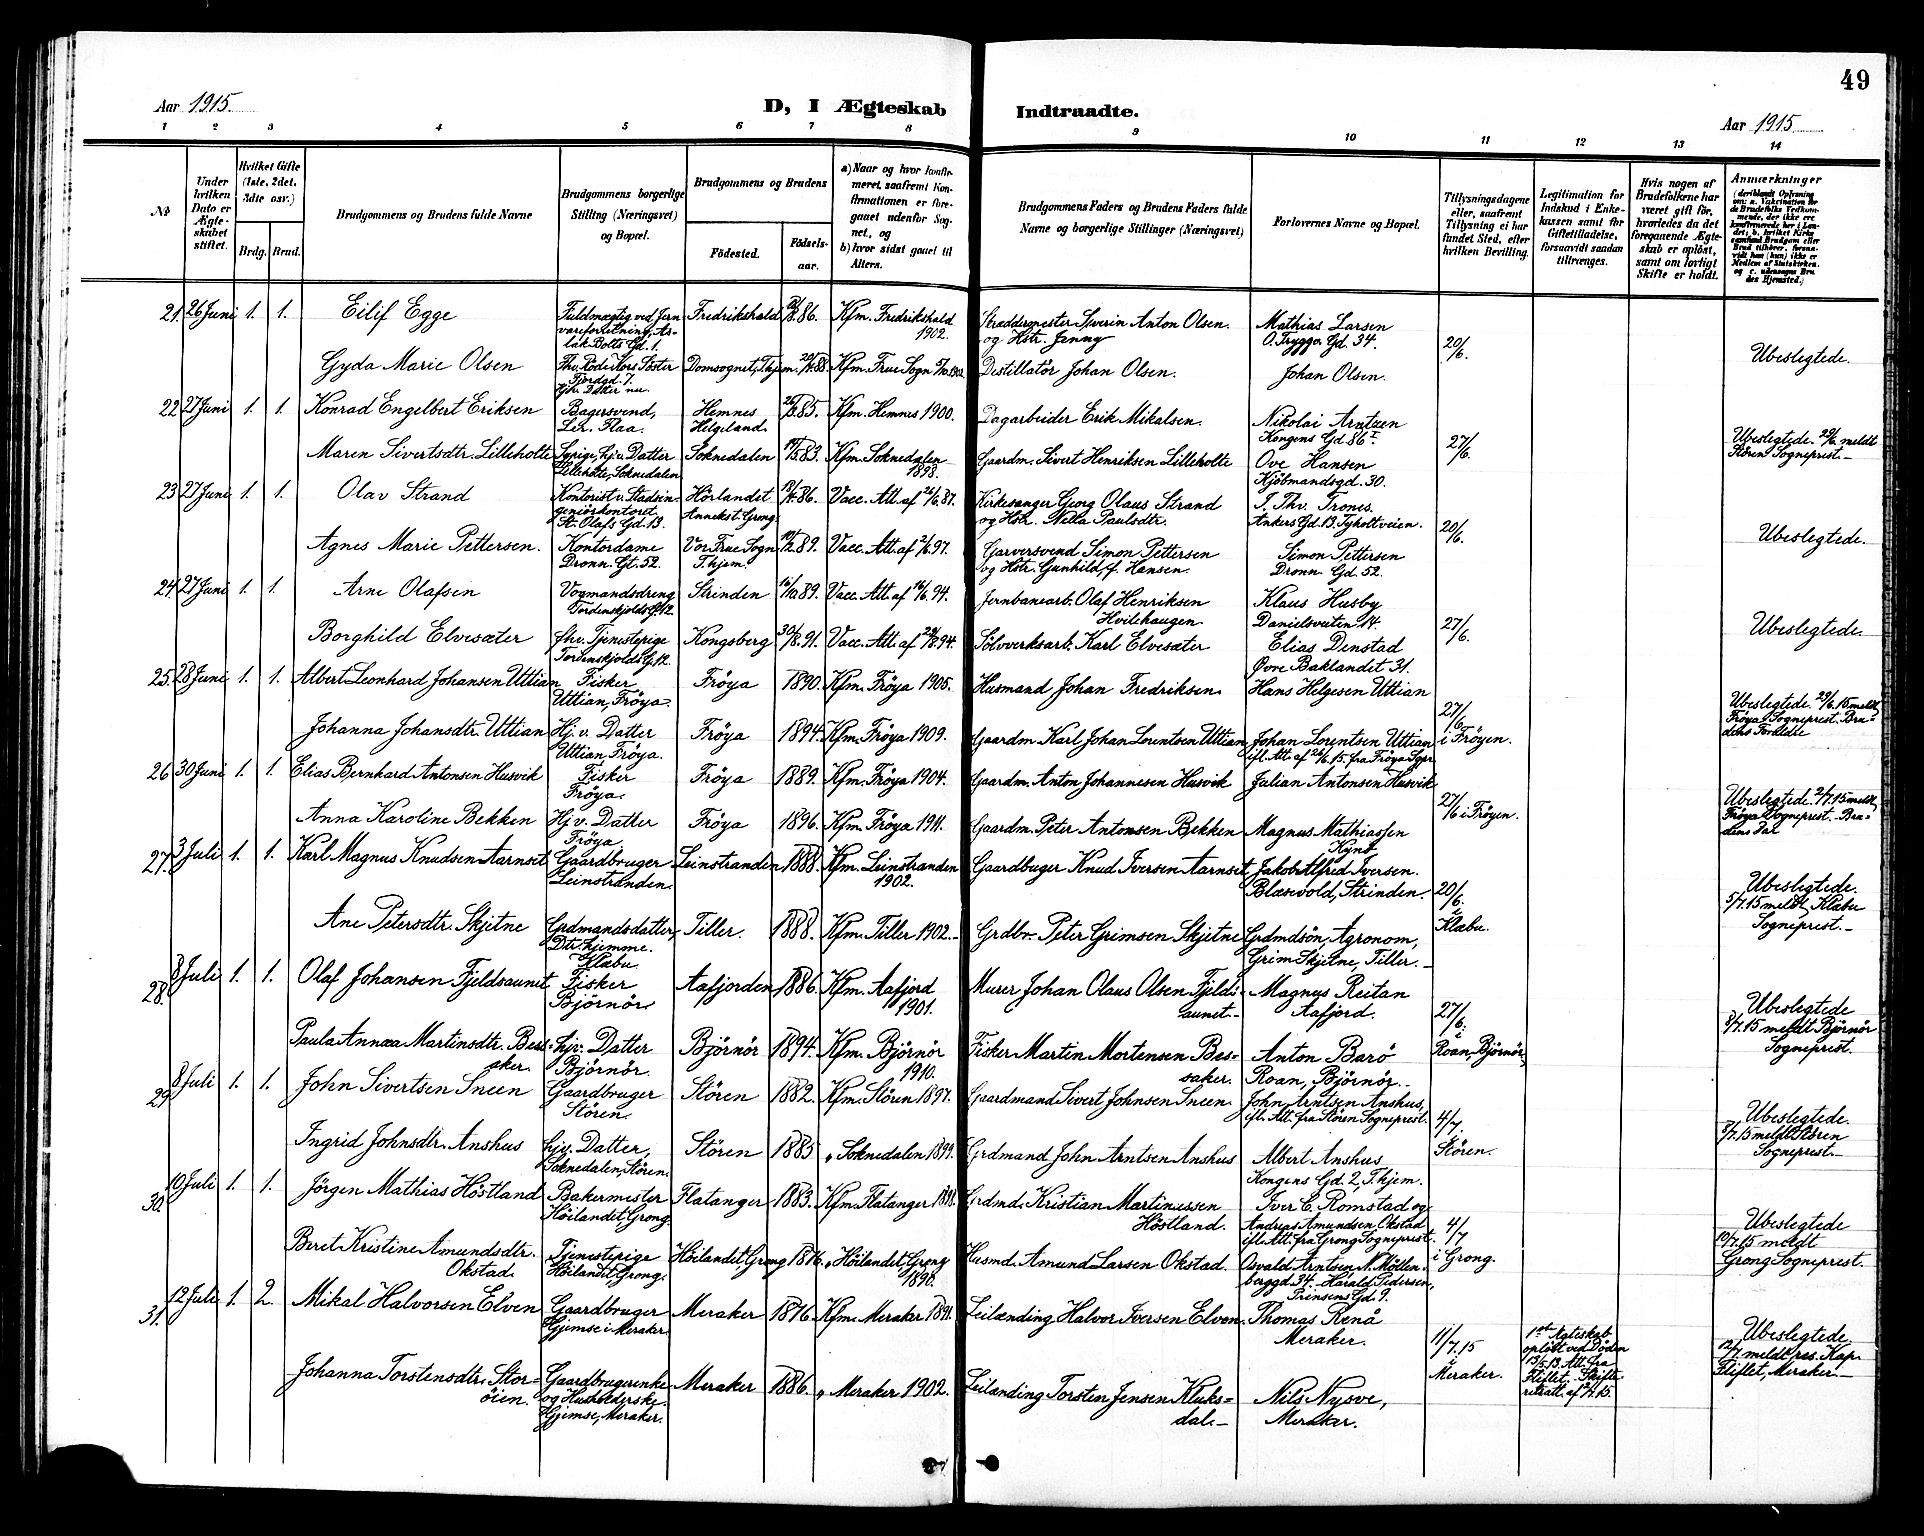 49
Aar 1915.
D, I Ægteskab Indtraadte.
Aar 1915
1 2 3 4 5 6 7 8 9 10 11 12 13 14
No
Under hvilken Dato er Ægteskabet stiftet.
Hvilket Gifte (1ste, 2det, 3dte osv.)
Brdg. Brud.
Brudgommens og Brudens fulde Navne
Brudgommens borgerlige Stilling (Næringsvei) og Bopæl.
Brudgommens og Brudens
Fødested.
Fødselsaar.
a) Naar og hvor konfirmeret, saafremt Konfirmationen er foregaaet udenfor Sognet, og
b) hvor sidst gaaet til Alters.
Brudgommens Faders og Brudens Faders fulde Navne og borgerlige Stillinger (Næringsvei)
Forlovernes Navne og Bopæl.
Tillysningsdagene eller, saafremt Tillysning ei har fundet Sted, efter hvilken Bevilling.
Legitimation for Indskud i Enkekassen samt for Giftetilladelse, forsaavidt saadan tiltrænges.
Hvis nogen af Brudefolkene har været gift før, hvorledes da det foregaaende Ægteskab er opløst, samt om lovligt Skifte er holdt.
Anmærkninger
21. 26 Juni 1. 1. Eilif Egge
Fuldmægtig ved Jernvareforretning, Aslak Bolts Gd. 1.
Fredrikshald 86. Kfm. Fredrikshald 1902.
Skræddermester Severin Anton Olsen. og Hstr. Jenny
Mathias Larsen
O. Tryggv. Gd. 34.
20/6.
Gyda Marie Olsen
Thv. Röde Kors Söster
Fjordgd. 7.
Domsognet, Thjem. 88. Kfm. Frue Sogn
Destillatör Johan Olsen.
Johan Olsen.
Ubeslegtede.
22 27 Juni 1. 1. Konrad Engelbert Eriksen
Bagersvend,
Hemnes Helgeland. 85. Kfm. Hemnes 1900.
Dagarbeider Erik Mikalsen.
Nikolai Arntzen
Kongens Gd 86 I.
27/6.
Maren Sivertsdtr. Lilleholte
Syerige, hj. v. Datter
Lilleholte, Soknedalen
Soknedalen 83. Kfm. Soknedalen 1898.
Gaardm. Sivert Henriksen Lilleholte
Ove Hansen
Kjöbmandsgd. 30.
Ubeslegtede. 29/6 meldt
Stören Sogneprest.—
23 27 Juni 1. 1. Olav Strand
Kontorist v. Stadsingeniörkontoret
St. Olafs Gd. 13.
Hörlandet Annekst. Grong. 86. Vacc. Att. af 87.
Kirkesanger Georg Olaus Strand og Hstr. Nella Paulsdtr.
J. Thv. Trones.
Ankers Gd. 13, Tyholtveien.
20/6.
Agnes Marie Pettersen.
Kontordame
Dronn. Gt. 52.
Vor Frue Sogn T.hjem. 89. Vacc. Att. af 97.
Garversvend Simon Pettersen og Hstr. Gunhild, f. Hansen.
Simon Pettersen
Dronn. Gd. 52.
Ubeslegtede.
24. 27 Juni 1. 1. Arne Olafsen
Vogmandsdreng
Tordenskjolds G. 12.
Strinden 89. Vacc. Att. af 16/6. 94.
Jernbanearb. Olaf Henriksen Hvilehaugen.
Klaus Husby
Danielsveiten 14.
27/6.
Borghild Elvesæter
fhv. Tjenestepige
Tordenskjolds G. 12.
Kongsberg 30/8. 91. Vacc. Att. af 29/8 94.
Sölvverksarb. Karl Elvesæter
Elias Denstad
Övre Baklandet 31.
Ubeslegtede.
25. 28 Juni 1. 1. Albert Leonhard Johansen Uttian
Fisker
Uttian, Fröya.
Fröya 1890. Kfm. Fröya 1905.
Husmand Johan Fredriksen.
Hans Helgesen Uttian
27/6. i Fröyen.
Johanna Johansdtr. Uttian
Hj. v. Datter
Uttian Fröya.
Fröya 1894. Kfm. Fröya 1909.
Gaardm. Karl Johan Lorentsen Uttian
Johan Lorentsen Uttian
ifl. Att. af 26/6. 15. fra Fröya Sgpr.
Ubeslegtede. 29/6. 15 meldt
Fröya Sogneprest.
26 30 Juni 1. 1. Elias Bernhard Antonsen Husvik
Fisker
Fröya.
Fröya 1889. Kfm. Fröya 1904.
Gaardm. Anton Johannesen Husvik
Julian Antonsen Husvik
27/6 i Fröyen.
Anna Karoline Bekken
Hj. v. Datter
Fröya.
Fröya 1896. Kfm. Fröya 1911.
Gaardm. Peter Antonsen Bekken
Magnus Mathiassen
Ubeslegtede. 2/7. 15 meldt
Fröya Sogneprest.
27. 3 Juli 1. 1. Karl Magnus Knudsen Aarnset
Gaardbruger
Leinstranden.
Leinstranden 1888. Kfm. Leinstranden 1902.
Gaardbruger Knud Iversen Aarnset
Jakob Alfred Iversen.
Blæsevold, Strinden.
20/6. i Klæbu.
Ane Petersdtr. Skjetne
Grdmandsdatter,
Dtr. hjemme.
Klæbu
Tiller. 1888. Kfm. Tiller 1902.—
Grdbr. Peter Grimsen Skjetne
Grdmdsön, Agronom,
Grim Skjetne, Tiller.—
Ubeslegtede.
5/7. 15 meldt Klæbu
Sogneprest.—
28. 8 Juli 1. 1. Olaf Johansen Fjeldsaunet
Fisker
Björnör.
Aafjorden 1886. Kfm. Aafjord 1901.
Murer Johan Olaus Olsen Fjeldsaunet.—
Magnus Reitan
Aafjord.
27/6. i Roan, Björnör.
Paula Annæa Martinsdtr. Bessaker.
hjv. Datter
Björnör.
Björnör 1894. Kfm. Björnör 1910.
Fisker Martin Mortensen Bessaker.
Anton Barö
Roan, Björnör.—
Ubeslegtede
8/7. 15 meldt Björnör
Sogneprest.
29 8 Juli 1. 1. John Sivertsen Sneen
Gaardbruger
Stören.
Stören 1882. Kfm. Stören 1897.
Gaardmand Sivert Johnsen Sneen
John Arntsen Anshus,
ifl. Att. fra Stören Sogneprest.
4/7. Stören.
Ingrid Johnsdtr. Anshus
hjv. Datter,
Soknedalen, Stören.
Stören 1885 " Soknedalen 1899.
Grdmand John Arntsen Anshus
Albert Anshus
Kongens Gd. 2, T.hjem.
Ubeslegtede.
8/7. 15 meldt Stören
Sogneprest.—
30. 10 Juli 1. 1. Jörgen Mathias Höstland
Bakermester
Höilandet, Grong.
Flatanger 1883. Kfm. Flatanger
Grdmd. Kristian Martinussen Höstland.
Iver C. Romstad og
Andreas Amundsen Okstad
ifl. Att. fra Grong Sogneprest.
4/7 i Grong.
Beret Kristine Amundsdtr. Okstad.
Tjenestepige
Höilandet Grong.
Höilandet, Grong 1876. " Höilandet Grong 1890.
Husmd. Amund Larsen Okstad.
Osvald Arntsen, N. Möllenberggd. 34. Harald Pedersen,
Prinsens Gd. 9.
Ubeslegtede
10/7. 15 meldt
Grong Sogneprest.
31. 12 Juli 1. 2. Mikal Halvorsen Elven
Gaardbruger
Gjemse i Meraker.
Meraker 1876. Kfm. Meraker 1891.
Leilænding Halvor Iversen Elven.
Thomas Renå
Meraker.
11/7. 15 i Meraker.
1ste Ægteskab opløst ved Döden 13/5. 13. Att. fra Fliflet. Skifteretsatt. af 2/7. 15.
Johanna Torstensdtr. Storöien.
Gaardbrugerenke
og Husholderske.
Gjemse, Meraker.
Meraker 1886. " Meraker 1902.
Leilænding Torsten Jensen Kluksdal.—
Nils Nysve,
Meraker.
Ubeslegtede.
12/7 meldt res. Kap.
Fliflet, Meraker.—